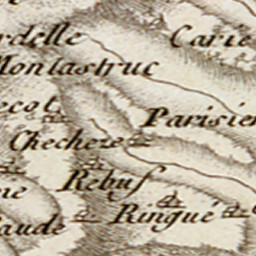 rdelle
Carie
Montastruc
ecot
Parisien
Checheze
Rebuf
ne
Ringué
aude